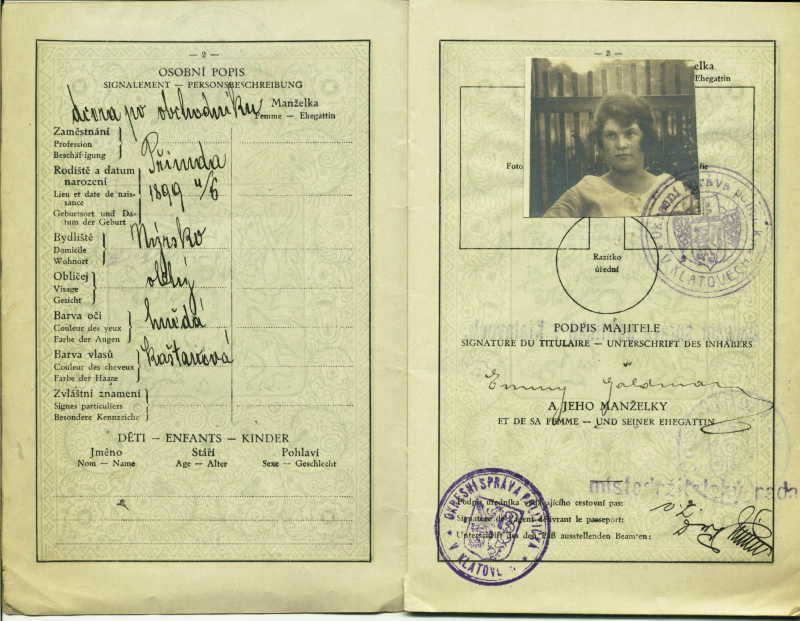 — 2 —
OSOBNÍ POPIS
SIGNALEMENT — PERSONSBESCHREIBUNG
dcera po obchodníku
Manželka
Femme — Ehegattin
Zaměstnání
Profession
Beschäf-igung
Přimda
Rodiště a datum
narození
1899 4/6
Lieu et date de nais-
sance
Geburtsort und Da-
tum der Geburt
Bydliště
Nýrsko
Domicile
Wohnort
Obličej
oblý
Visage
Gesicht
Barva očí
hnědá
Couleur des yeux
Farbe der Augen
Barva vlasů
kaštanová
Couleur des cheveux
Farbe der Haare
Zvláštní znamení
Signes particuliers
Besondere Kennzeiche
DĚTI — ENFANTS — KINDER
Jméno Stáří Pohlaví
Nom — Name Age — Alter Sexe — Geschlecht
— 2 —
elka
Ehegattin
Foto
fie
V KLATOVECH
Razítko
úřední
PODPIS MAJITELE
SIGNATURE DU TITULAIRE — UNTERSCHRIFT DES INHABERS
Emmy Goldmann
A JEHO MANŽELKY
ET DE SA FEMME — UND SEINER EHEGATTIN
místodržitelský rada
OKRESNÍ SPRÁVA POLITICKÁ
V KLATOVE
Podpis úředníka jícího cestovní pas:
Signature de l'agent délivrant le passeport:
Unterschrift des den Paß ausstellenden Beamten: